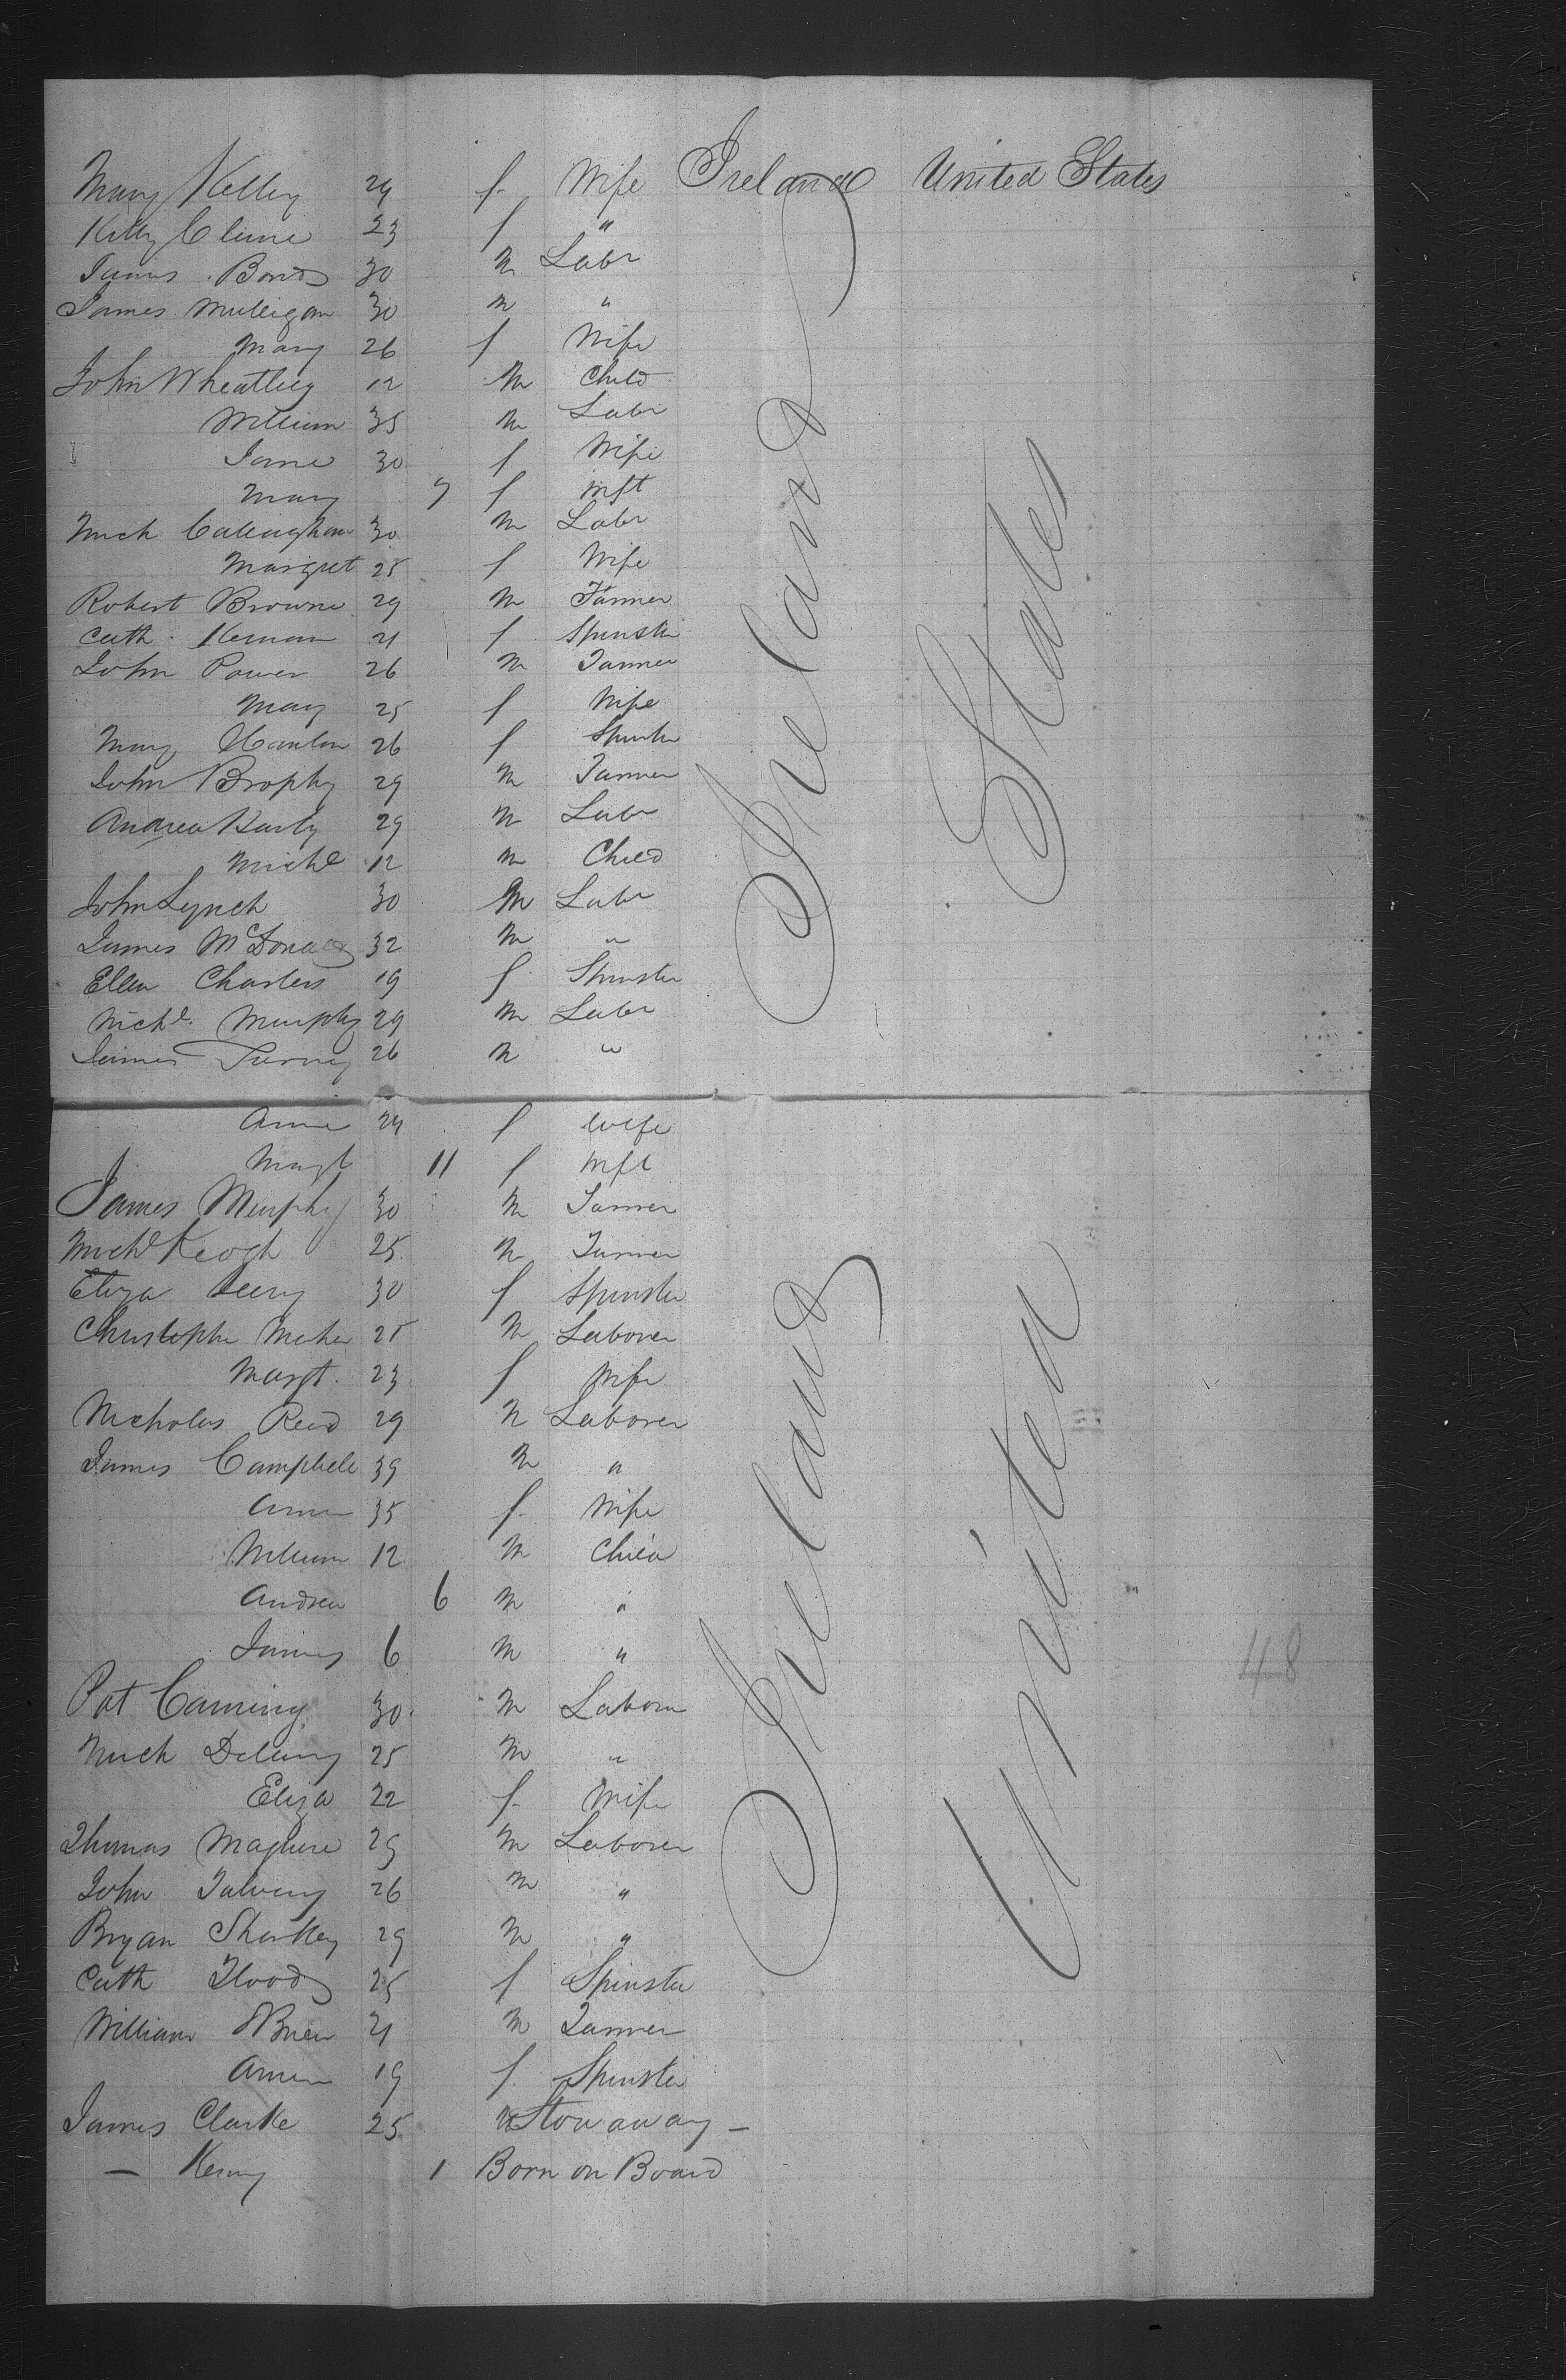 Mary Kelley 29 f Wife Ireland United States
Kitty Clune 23 f "
James Bond 30 m Labr
James Mulligan 30 m "
Mary 26 f Wife
John Wheatley 12 m Child
William 35 m Labr
Jane 30 f Wife
Mary 7 f Inft
Mich Callaughan 30 m Labr
Margret 25 f Wife
Robert Browne 29 m Farmer
Cath Kernan 21 f Spinster
John Power 26 m Farmer
Mary 25 f Wife
Mary Hanlon 26 f Spinster
John Brophy 29 m Farmer
Andrew 29 m Labr
Michl 12 m Child
John Lynch 30 m Labr
James McDonald 32 m "
Ellen Charters 19 f Spinster
Michl Murphy 29 m Labr
James 26 m "
Anne 24 f Wife
Margt 11 f Inft
James Murphy 30 m Farmer
Michl Keogh 25 m Farmer
Eliza 30 f Spinster
Christopher Meher 25 m Laborer
Margt. 23 f Wife
Nicholas Reid 29 m Laborer
James Campbell 39 m "
Ann 35 f Wife
William 12 m Child
Andrew 6 m "
James 6 m "
Pat Canning 30 m Laborer
Mich Delany 25 m "
Eliza 22 f Wife
Thomas Maguire 29 m Laborer
John 26 m "
Bryan Sharkey 29 m "
Cath Flood 25 f Spinster
William OBrien 21 m Farmer
Anne 19 f Spinster
James Clarke 25 m Stowaway —
— Kenny 1 Born on Board
Ireland
States
Ireland
United
48